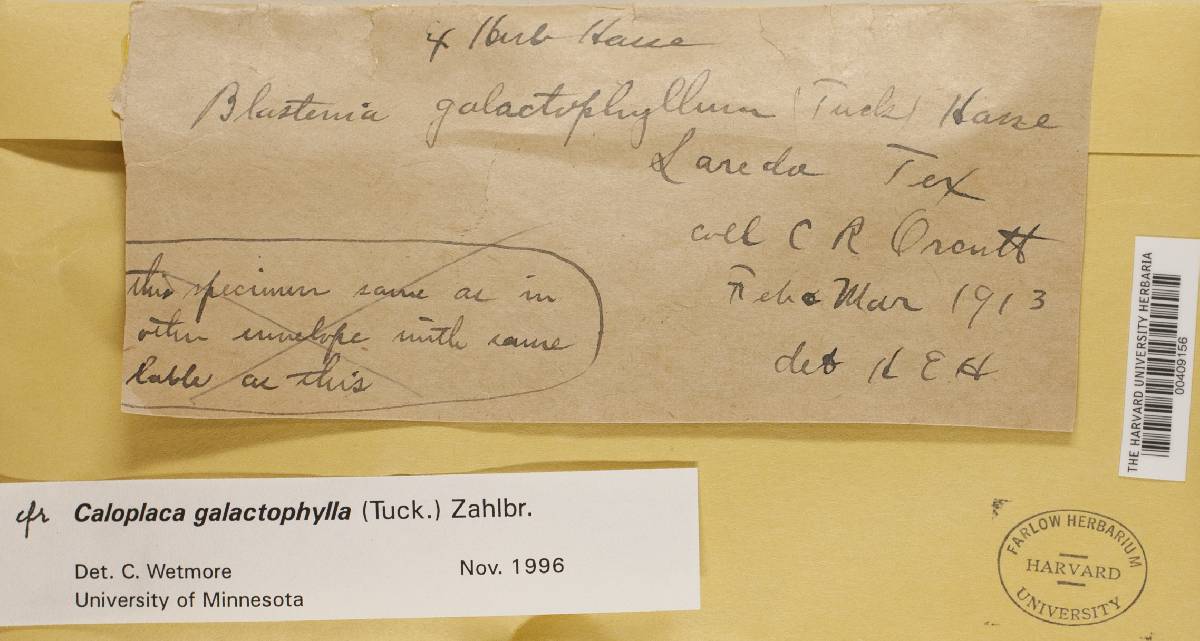 Herb Hasse
Blastenia galactophyllum (Tuck) Hasse
Laredo Tex
coll C R Orcutt
Feb & Mar 1913
det H E H
this specimen same as in
other envelope with same
lable as this
THE HARVARD UNIVERSITY HERBARIA
00409156
cfr Caloplaca galactophylla (Tuck.) Zahlbr.
Det. C. Wetmore Nov. 1996
University of Minnesota
FARLOW HERBARIUM
HARVARD
UNIVERSITY